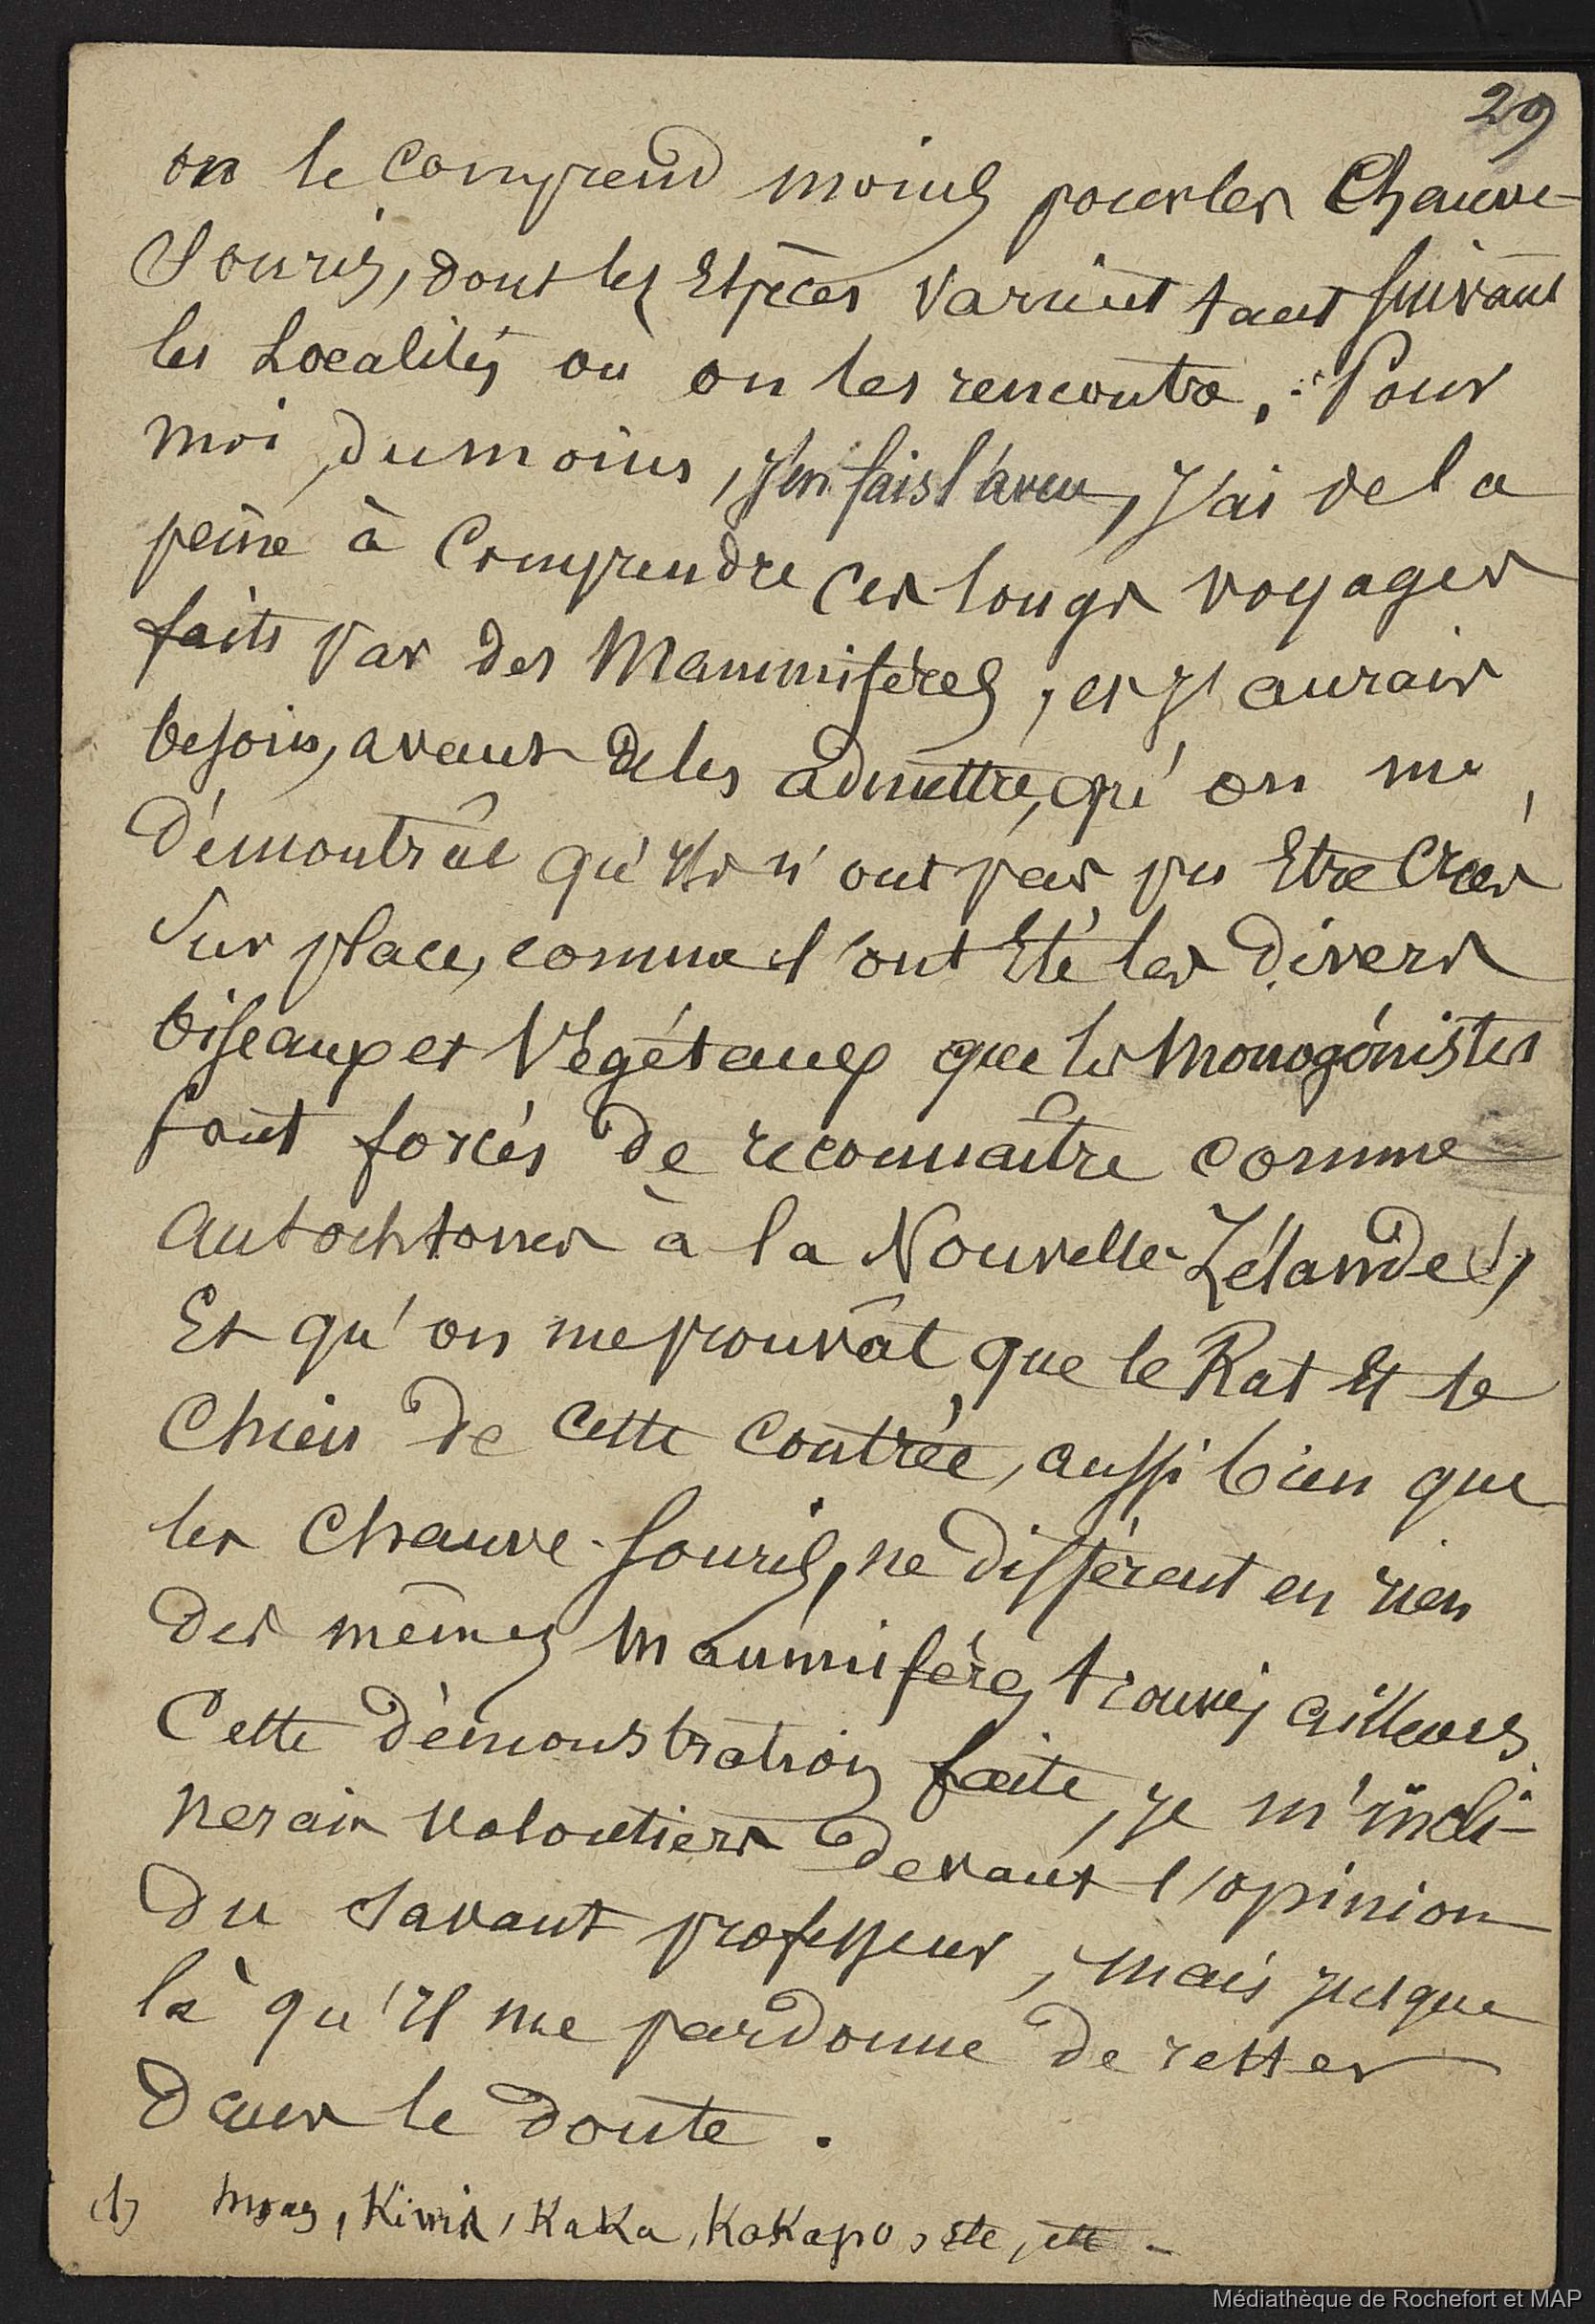 29
on le comprend moins pour les Chauve-
Souris, dont les Espèces varient tant suivant
les Localités où on les rencontre. Pour
moi, du moins, j'en fais l'aveu, j'ai de la
peine à comprendre ces longs voyages
faits par des Mammifères, et j'aurais
besoin, avant de les admettre, qu'on me
démontrât qu'ils n'ont pas pu Etre Créés
sur place, comme l'ont Eté les divers
Oiseaux et Végétaux que les Monogénistes
sont forcés de reconnaître comme
autochtones à la Nouvelle-Zélande (1),
Et qu'on me prouvât que le Rat Et le
Chien de cette contrée, aussi bien que
les Chauve-souris, ne différent en rien
des mêmes Mammifères trouvés ailleurs.
Cette démonstration faite, je m'incli-
nerais volontiers devant l'opinion
du savant professeur, mais jusque
là qu'il me pardonne de rester
dans le doute.
(1) Moas, Kiwis, KaKa, KaKapo, Etc, etc -
Médiathèque de Rochefort et MAP